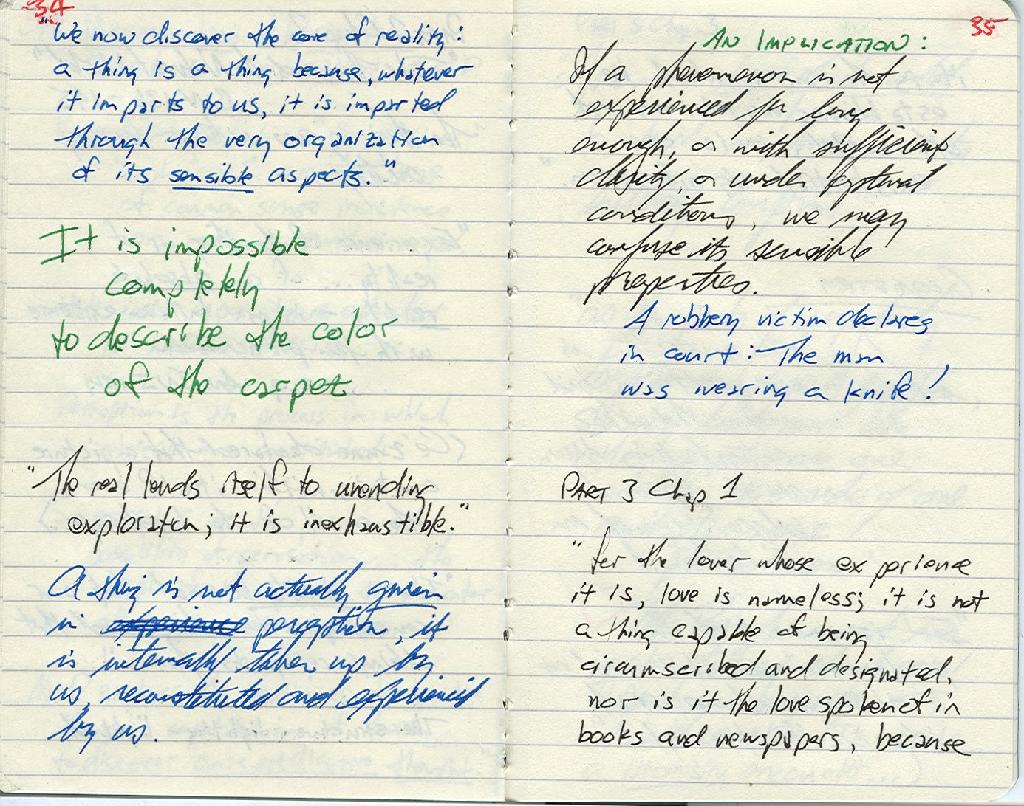 34
"We now discover the core of reality:
a thing is a thing because, whatever
it imparts to us, it is imparted
through the very organization
of its sensible aspects."
It is impossible
completely
to describe the color
of the carpet
"The real lends itself to unending
exploration; it is inexhaustible."
A thing is not actually given
in experience perception, it
is internally taken up by
us, reconstituted and experienced
by us.
35
AN IMPLICATION:
If a phenomenon is not
experienced for long
enough, or with sufficient
clarity, or under optimal
conditions, we may
confuse its sensible
properties.
A robbery victim declares
in court: The man
was wearing a knife!
PART 3 Chap 1
"for the lover whose experience
it is, love is nameless; it is not
a thing capable of being
circumscribed and designated,
nor is it the love spoken of in
books and newspapers, because